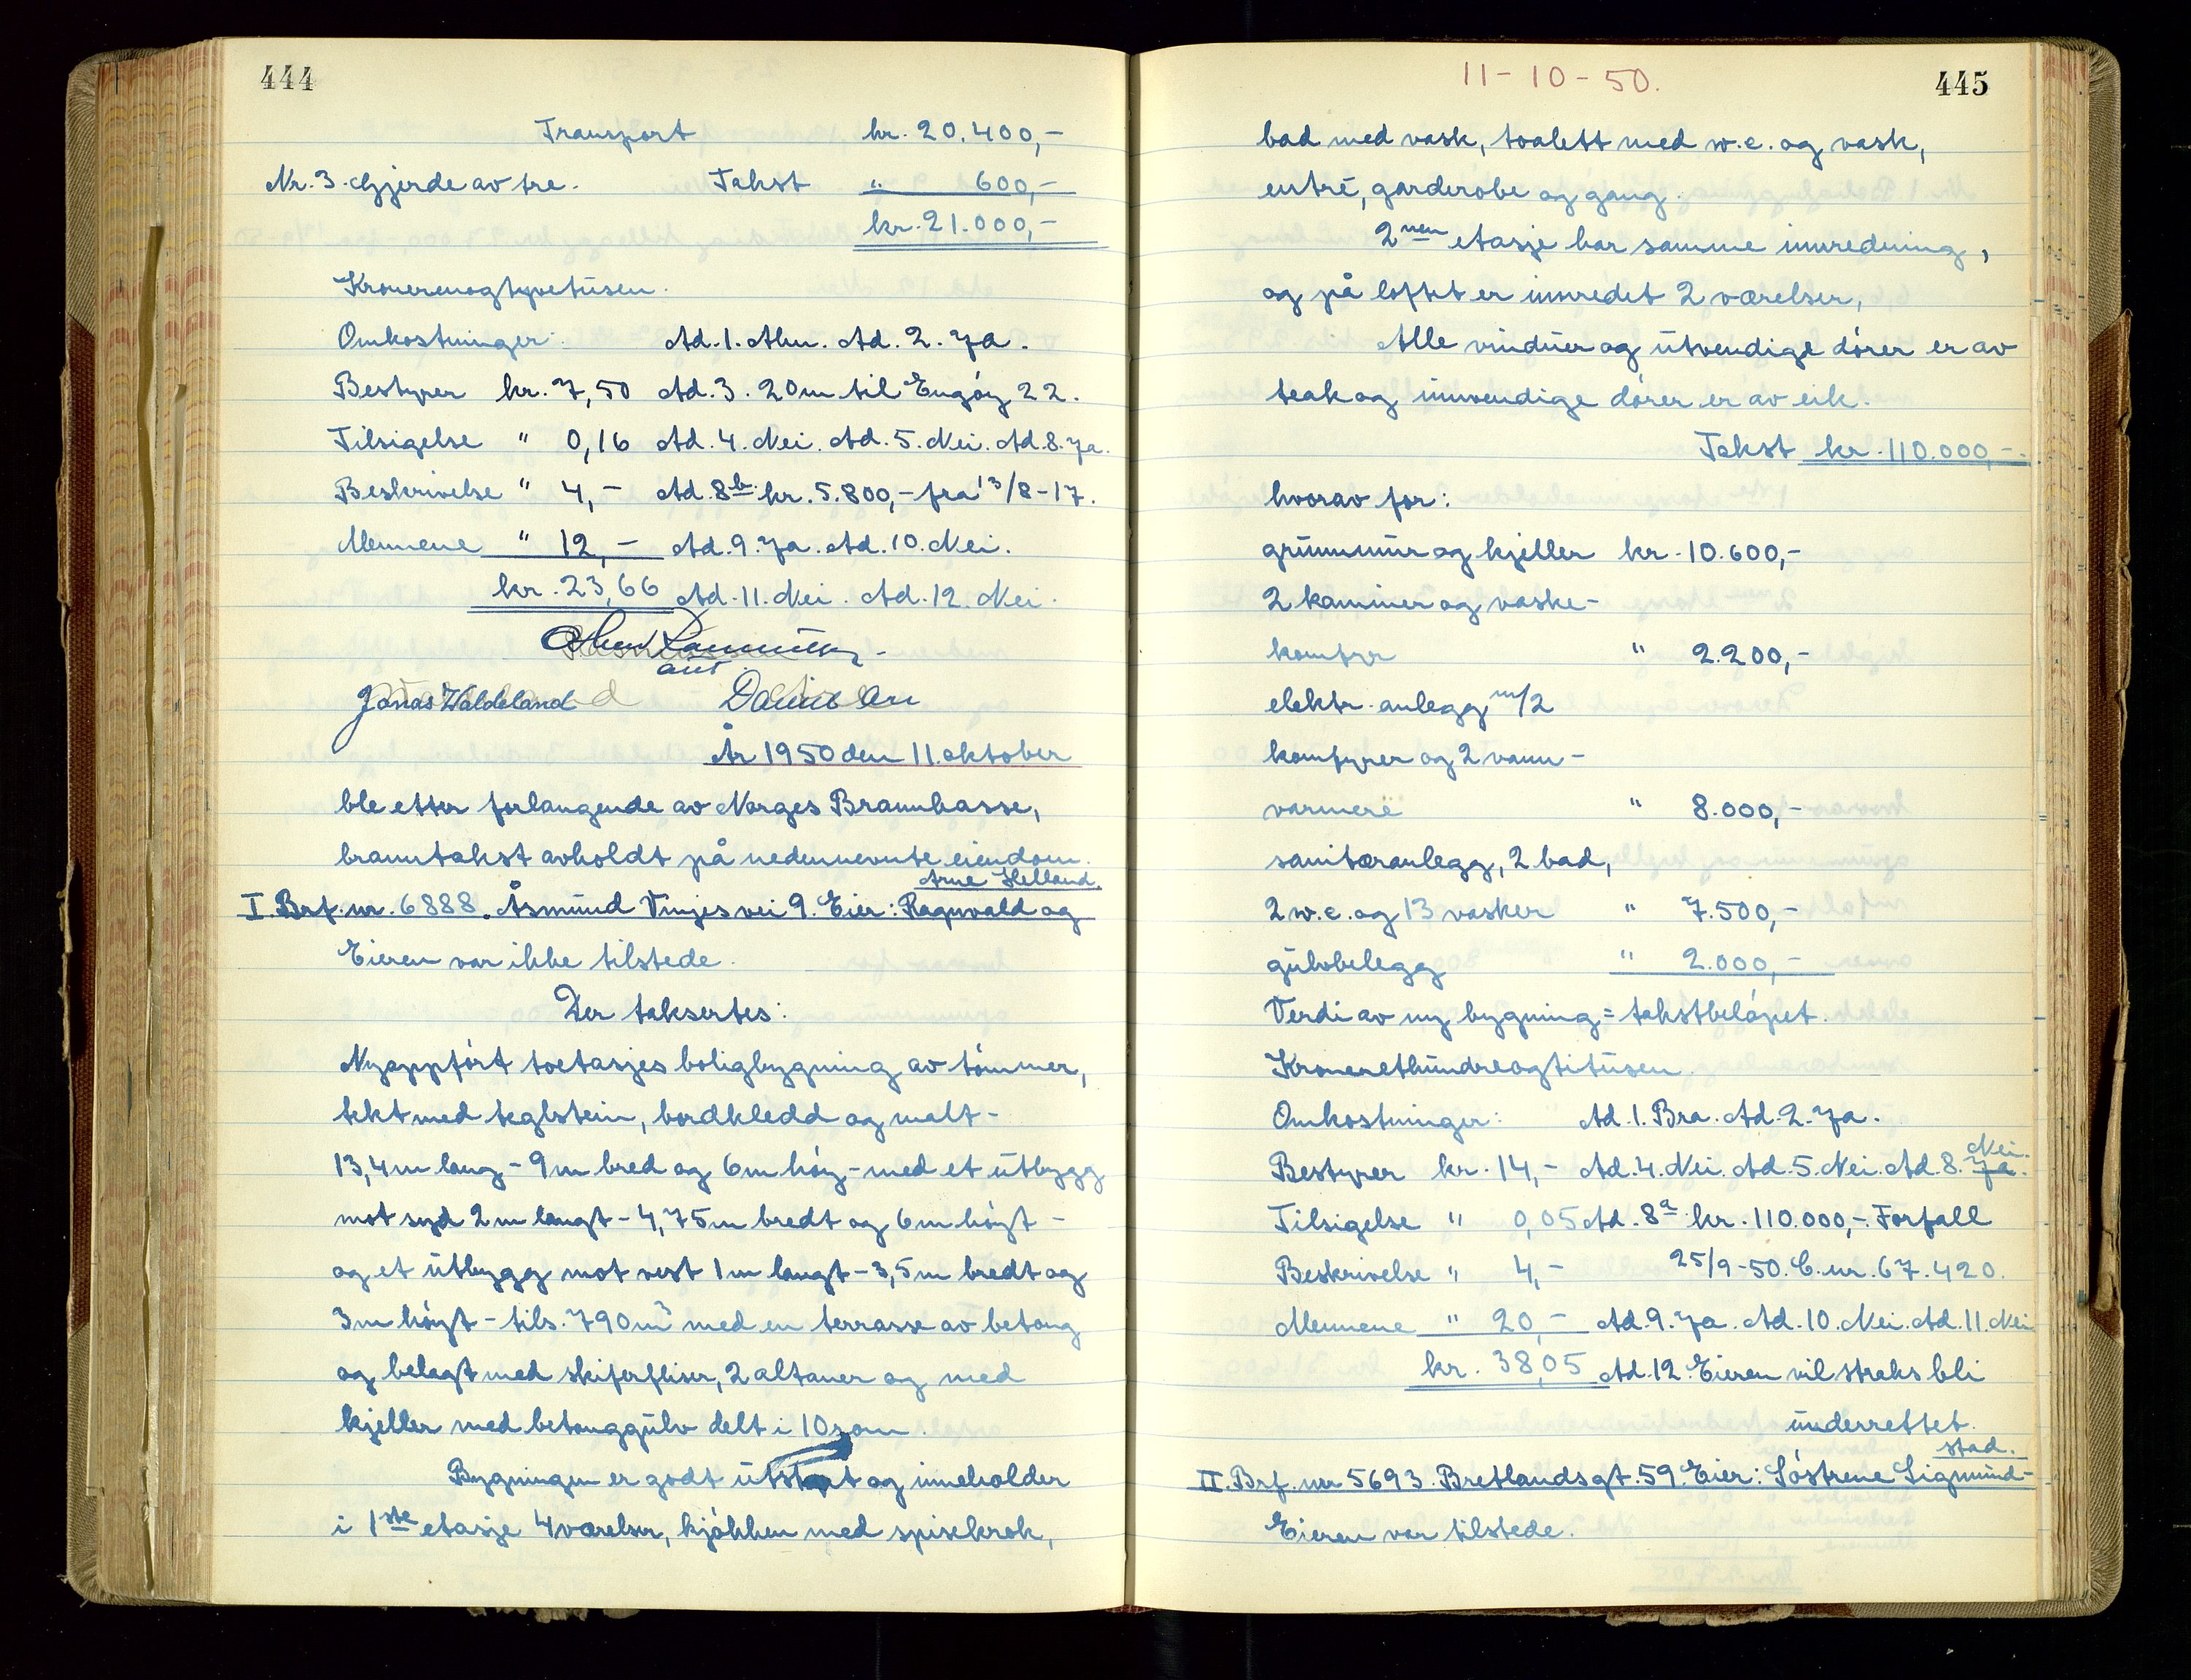 444
Transport kr. 20.400,-
Nr. 3. Gjerde av tre. Takst " 600,-
kr. 21.000,-
Kronerenogtyvetusen.
Omkostninger: Ad. 1. Alm. Ad. 2. Ja.
Bestyrer kr. 7,50 Ad. 3. 20m til Engøy 22.
Tilsigelse " 0,16 Ad. 4. Nei. Ad. 5. Nei. Ad. 8. Ja.
Beskrivelse " 4,- Ad. 8b kr. 5.800,- fra 13/8-17.
Mennene " 12,- Ad. 9. Ja. Ad. 10. Nei.
kr. 23,66 Ad. 11. Nei. Ad. 12. Nei.
Jonas Waldeland
År 1950 den 11. oktober
ble etter forlangende av Norges Brannkasse,
branntakst avholdt på nedennevnte eiendom.
Arne Helland.
I Brf. nr. 6888. Åsmund Vinjes vei 9. Eier: Ragnvald og
Eieren var ikke tilstede.
Der taksertes:
Nyoppført toetasjes boligbygning av tømmer,
tekt med teglstein, bordkledd og malt -
13,4m lang - 9m bred og 6m høy - med et utbygg
mot syd 2m langt - 4,75m bredt og 6m høyt -
og et utbygg mot vest 1m langt - 3,5m bredt og
3m høyt - tils. 790m³ med en terrasse av betong
og belagt med skiferfliser, 2 altaner og med
kjeller med betonggulv delt i 10 rom.
Bygningen er godt utstyrt og inneholder
i 1ste etasje 4 værelser, kjøkken med spisekrok,
11-10-50.
445
bad med vask, toalett med w.c. og vask,
entré, garderobe og gang.
2nen etasje har samme innredning,
og på loftet er innredet 2 værelser,
Alle vinduer og utvendige dører er av
teak og innvendige dører er av eik.
Takst kr. 110.000,-.
hvorav for:
grunnmur og kjeller kr. 10.600,-
2 kaminer og vaske-
komfyr " 2.200,-
elektr. anlegg m/2
komfyrer og 2 vann-
varmere " 8.000,-
sanitæranlegg, 2 bad,
2 w.c. og 13 vasker " 7.500,-
gulvbelegg " 2.000,-
Verdi av ny bygning = takstbeløpet.
Kronerethundreogtitusen.
Omkostninger: Ad. 1. Bra. Ad. 2. Ja.
Nei.
Bestyrer kr. 14,- Ad. 4. Nei. Ad. 5. Nei. Ad. 8. Ja.
Tilsigelse " 0,05 Ad. 8a kr. 110.000,-. Forfall
Beskrivelse " 4,- 25/9-50. C. nr. 67.420.
Mennene " 20,- Ad. 9. Ja. Ad. 10. Nei. Ad. 11. Nei
kr. 38,05 Ad. 12. Eieren vil straks bli
underrettet.
stad.
II. Brf. nr 5693. Bretlandsgt. 59. Eier: Søstrene Sigmund-
Eieren var tilstede.